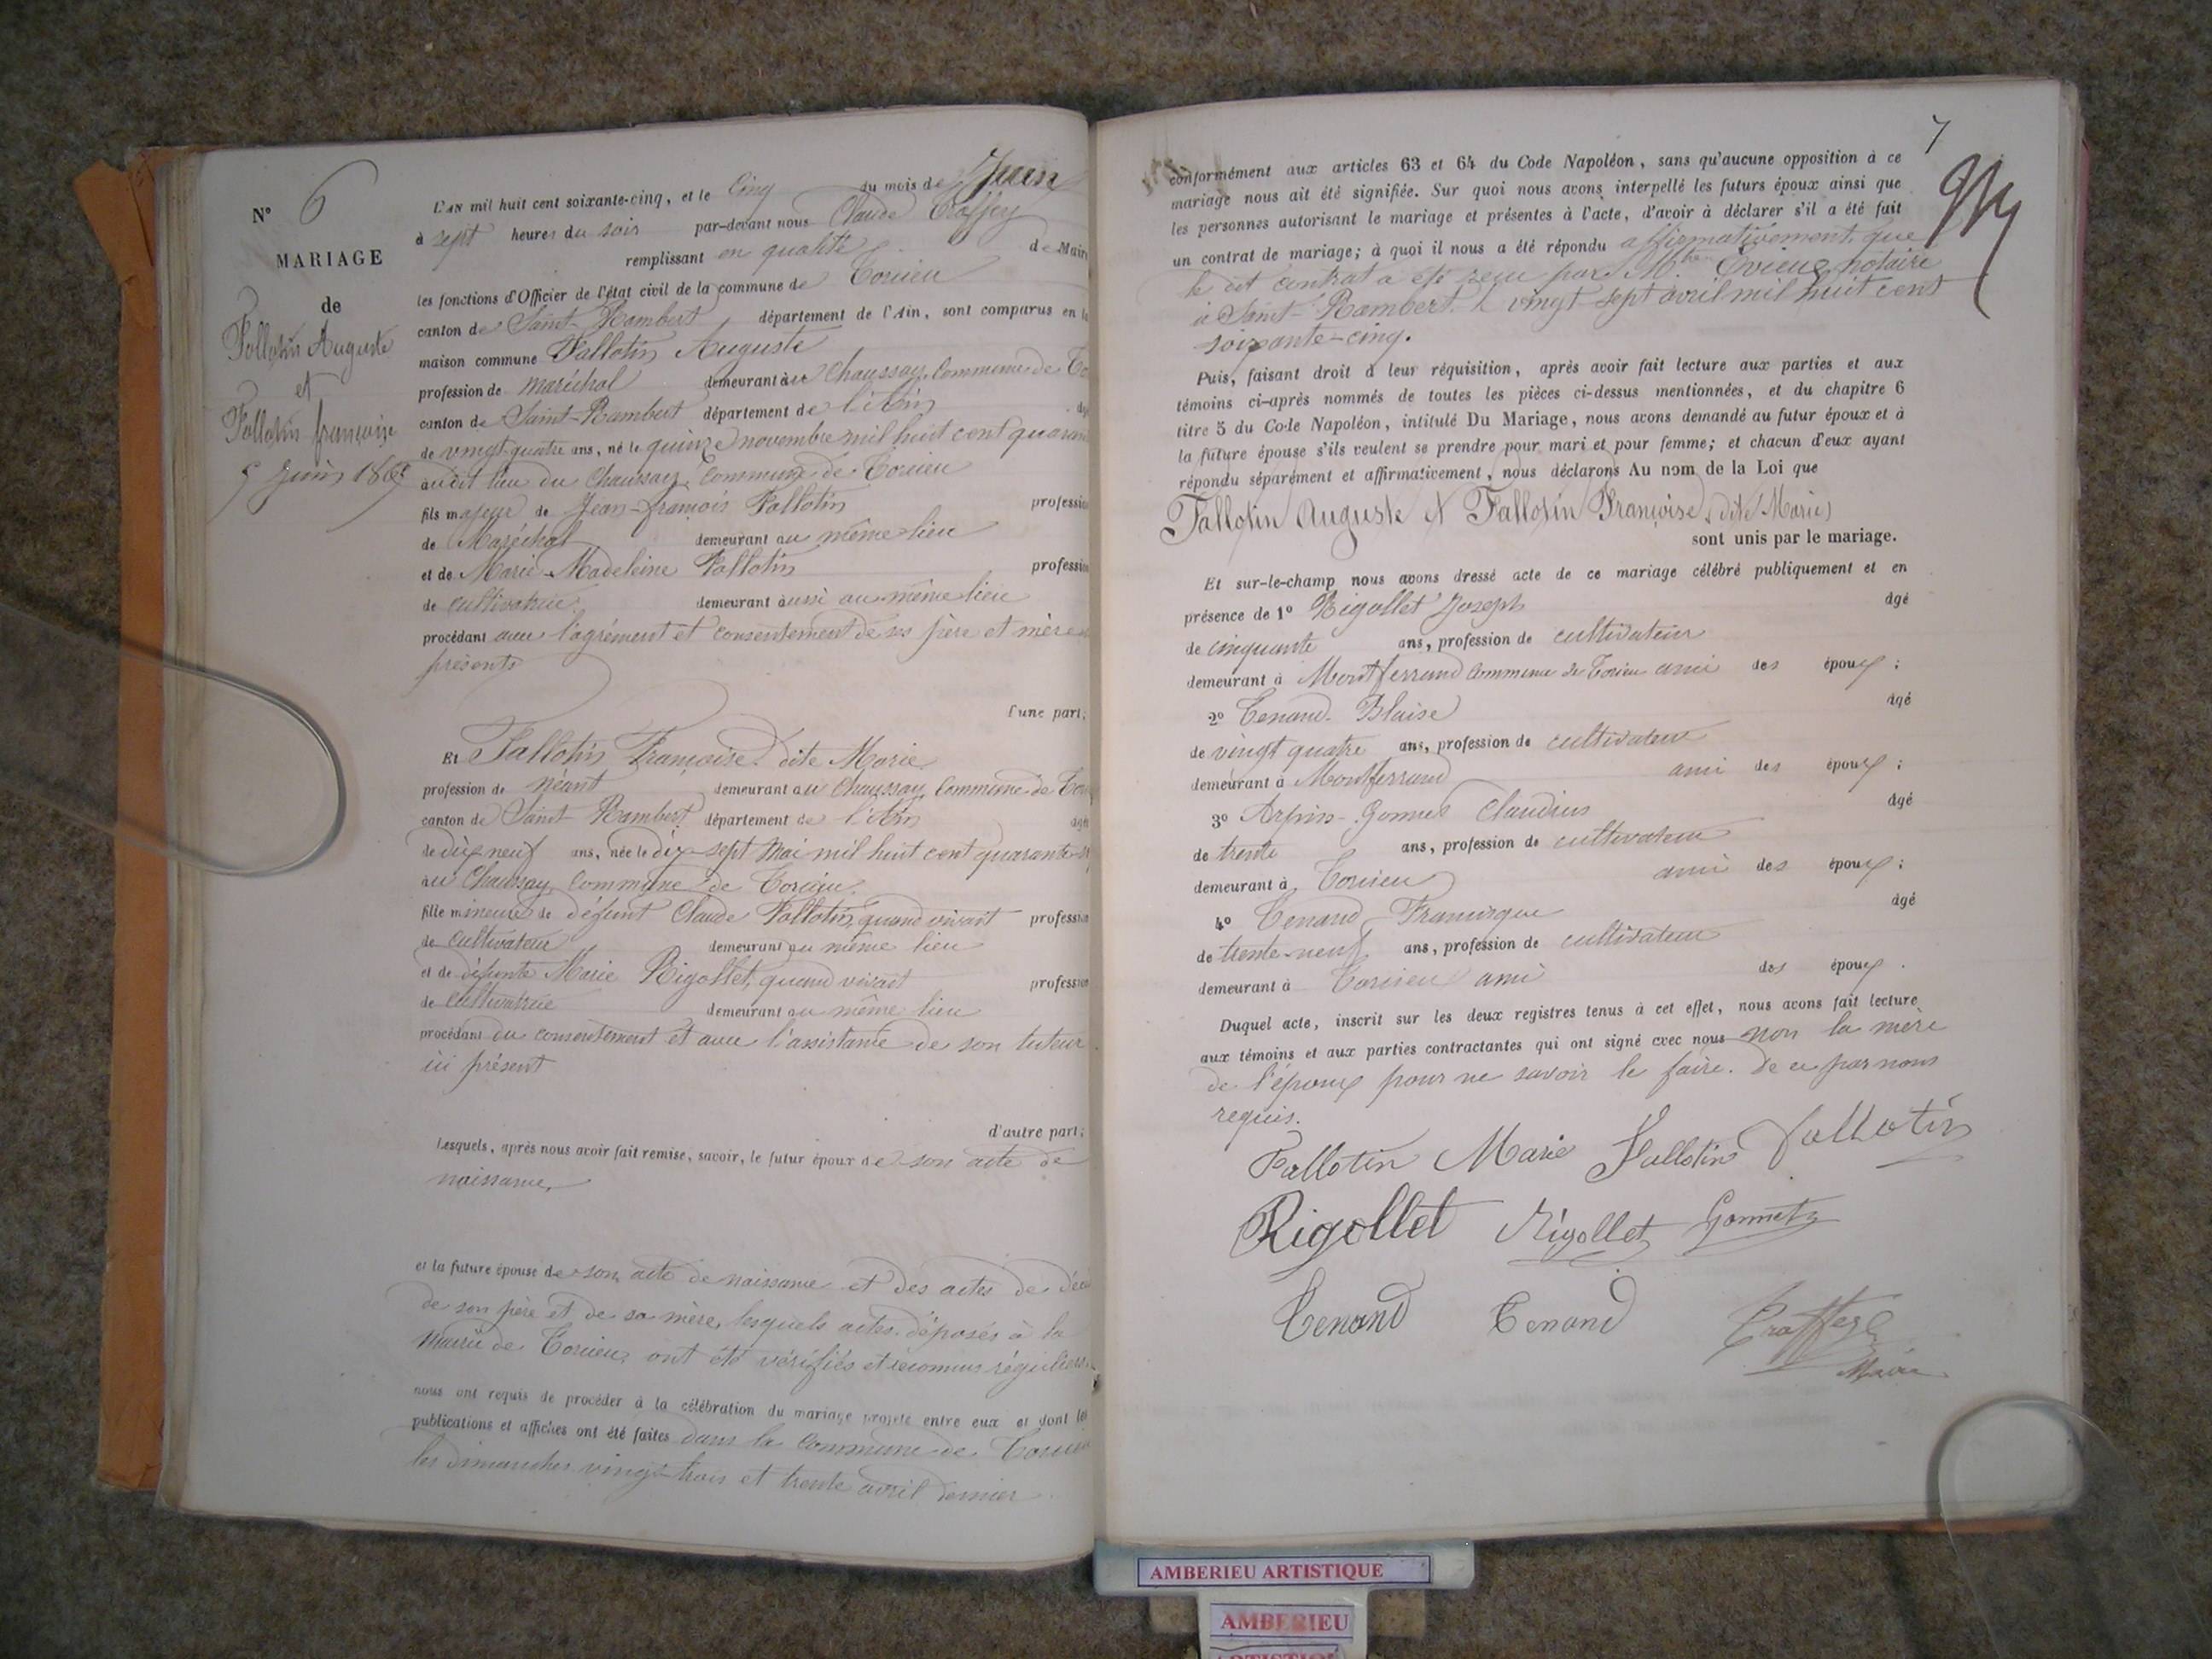 N° 6
MARIAGE
de
Fallotin Auguste
et
Fallotin françoise
5 Juin 1865
L'AN mil huit cent soixante-cinq, et le Cinq du mois de Juin
à sept heures du soir par-devant nous Claude
remplissant en qualité de Maire
les fonctions d'Officier de l'état civil de la commune de Torcieu
canton de Saint-Rambert département de l'Ain, sont comparus en la
maison commune Fallotin Auguste
profession de maréchal demeurant au Chaussay, Commune de To
canton de Saint-Rambert département de l'Ain
de vingt-quatre ans, né le quinze novembre mil huit cent quaran
audit lieu du Chaussay, Commune de Torcieu
fils majeur de Jean-françois Fallotin profession
de Maréchal demeurant au même lieu
et de Marie-Madeleine Fallotin profession
de cultivatrice demeurant aussi au même lieu
procédant avec l'agrément et consentement de ses père et mère
présents
l'une part;
Et Fallotin Françoise dite Marie
profession de néant demeurant au Chaussay, Commune de Tor
canton de Saint Rambert département de l'Ain âgée
de dix neuf ans, née le dix-sept Mai mil huit cent quarante
au Chaussay, Commune de Torcieu
fille mineure de défunt Claude Fallotin, quand vivait profession
de Cultivateur demeurant au même lieu
et de défunte Marie Rigollet, quand vivait profession
de Cultivatrice demeurant au même lieu
procédant du consentement et avec l'assistance de son tuteur
ici présent
d'autre part;
Lesquels, après nous avoir fait remise, savoir, le futur époux de son acte de
naissance,
et la future épouse de son acte de naissance et des actes de décè
de son père et de sa mère, lesquels actes déposés à la
Mairie de Torcieu, ont été vérifiés et reconnus réguliers
nous ont requis de procéder à la célébration du mariage projeté entre eux et dont les
publications et affiches ont été faites dans la Commune de Torcieu
les dimanches vingt-trois et trente avril dernier
7
conformément aux articles 63 et 64 du Code Napoléon, sans qu'aucune opposition à ce
mariage nous ait été signifiée. Sur quoi nous avons interpellé les futurs époux ainsi que
les personnes autorisant le mariage et présentes à l'acte, d'avoir à déclarer s'il a été fait
un contrat de mariage; à quoi il nous a été répondu affirmativement, que
le dit contrat a été reçu par notaire
à Saint-Rambert le vingt sept avril mil huit cent
soixante-cinq.
Puis, faisant droit à leur réquisition, après avoir fait lecture aux parties et aux
témoins ci-après nommés de toutes les pièces ci-dessus mentionnées, et du chapitre 6
titre 5 du Code Napoléon, intitulé Du Mariage, nous avons demandé au futur époux et à
la future épouse s'ils veulent se prendre pour mari et pour femme; et chacun d'eux ayant
répondu séparément et affirmativement, nous déclarons Au nom de la Loi que
Fallotin Auguste et Fallotin Françoise, dite Marie
sont unis par le mariage.
Et sur-le-champ nous avons dressé acte de ce mariage célébré publiquement et en
présence de 1° Rigollet Joseph âgé
de cinquante ans, profession de cultivateur
demeurant à Montferrand Commune de Torcieu ami des époux;
2° Tenand Blaise âgé
de vingt quatre ans, profession de cultivateur
demeurant à Montferrand ami des époux;
3° Claudius âgé
de trente ans, profession de cultivateur
demeurant à Torcieu ami des époux;
4° Tenand Francisque âgé
de trente-neuf ans, profession de cultivateur
demeurant à Torcieu ami des époux.
Duquel acte, inscrit sur les deux registres tenus à cet effet, nous avons fait lecture
aux témoins et aux parties contractantes qui ont signé avec nous non la mère
de l'époux pour ne savoir le faire. de ce par nous
requis.
Fallotin Marie Fallotin Fallotin
Rigollet Rigollet Gonnet
Tenand Tenand
Maire
AMBERIEU ARTISTIQUE
AMBERIEU
ARTISTIQUE